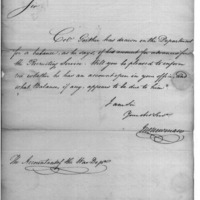 Sir
Col. Gaither has drawn on the Department
for a balance, as he says, of his account for advances for
the Recruiting Service. Will you be pleased to inform
me whether he has an account open in your office and
what Balance if any, appears to be due to him
I am Sir
The Accountant of the War Dept.